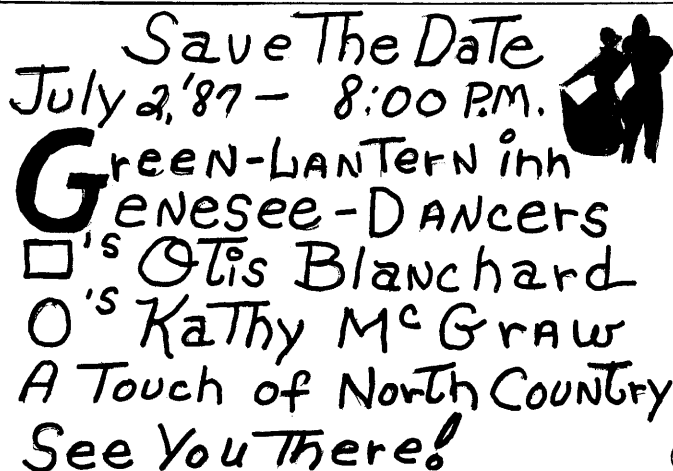 Save The Date
July 2,'87 - 8:00 P.M.
Green-Lantern inn
Genesee-Dancers
□'s Otis Blanchard
O's Kathy McGraw
A Touch of North Country
See You There!